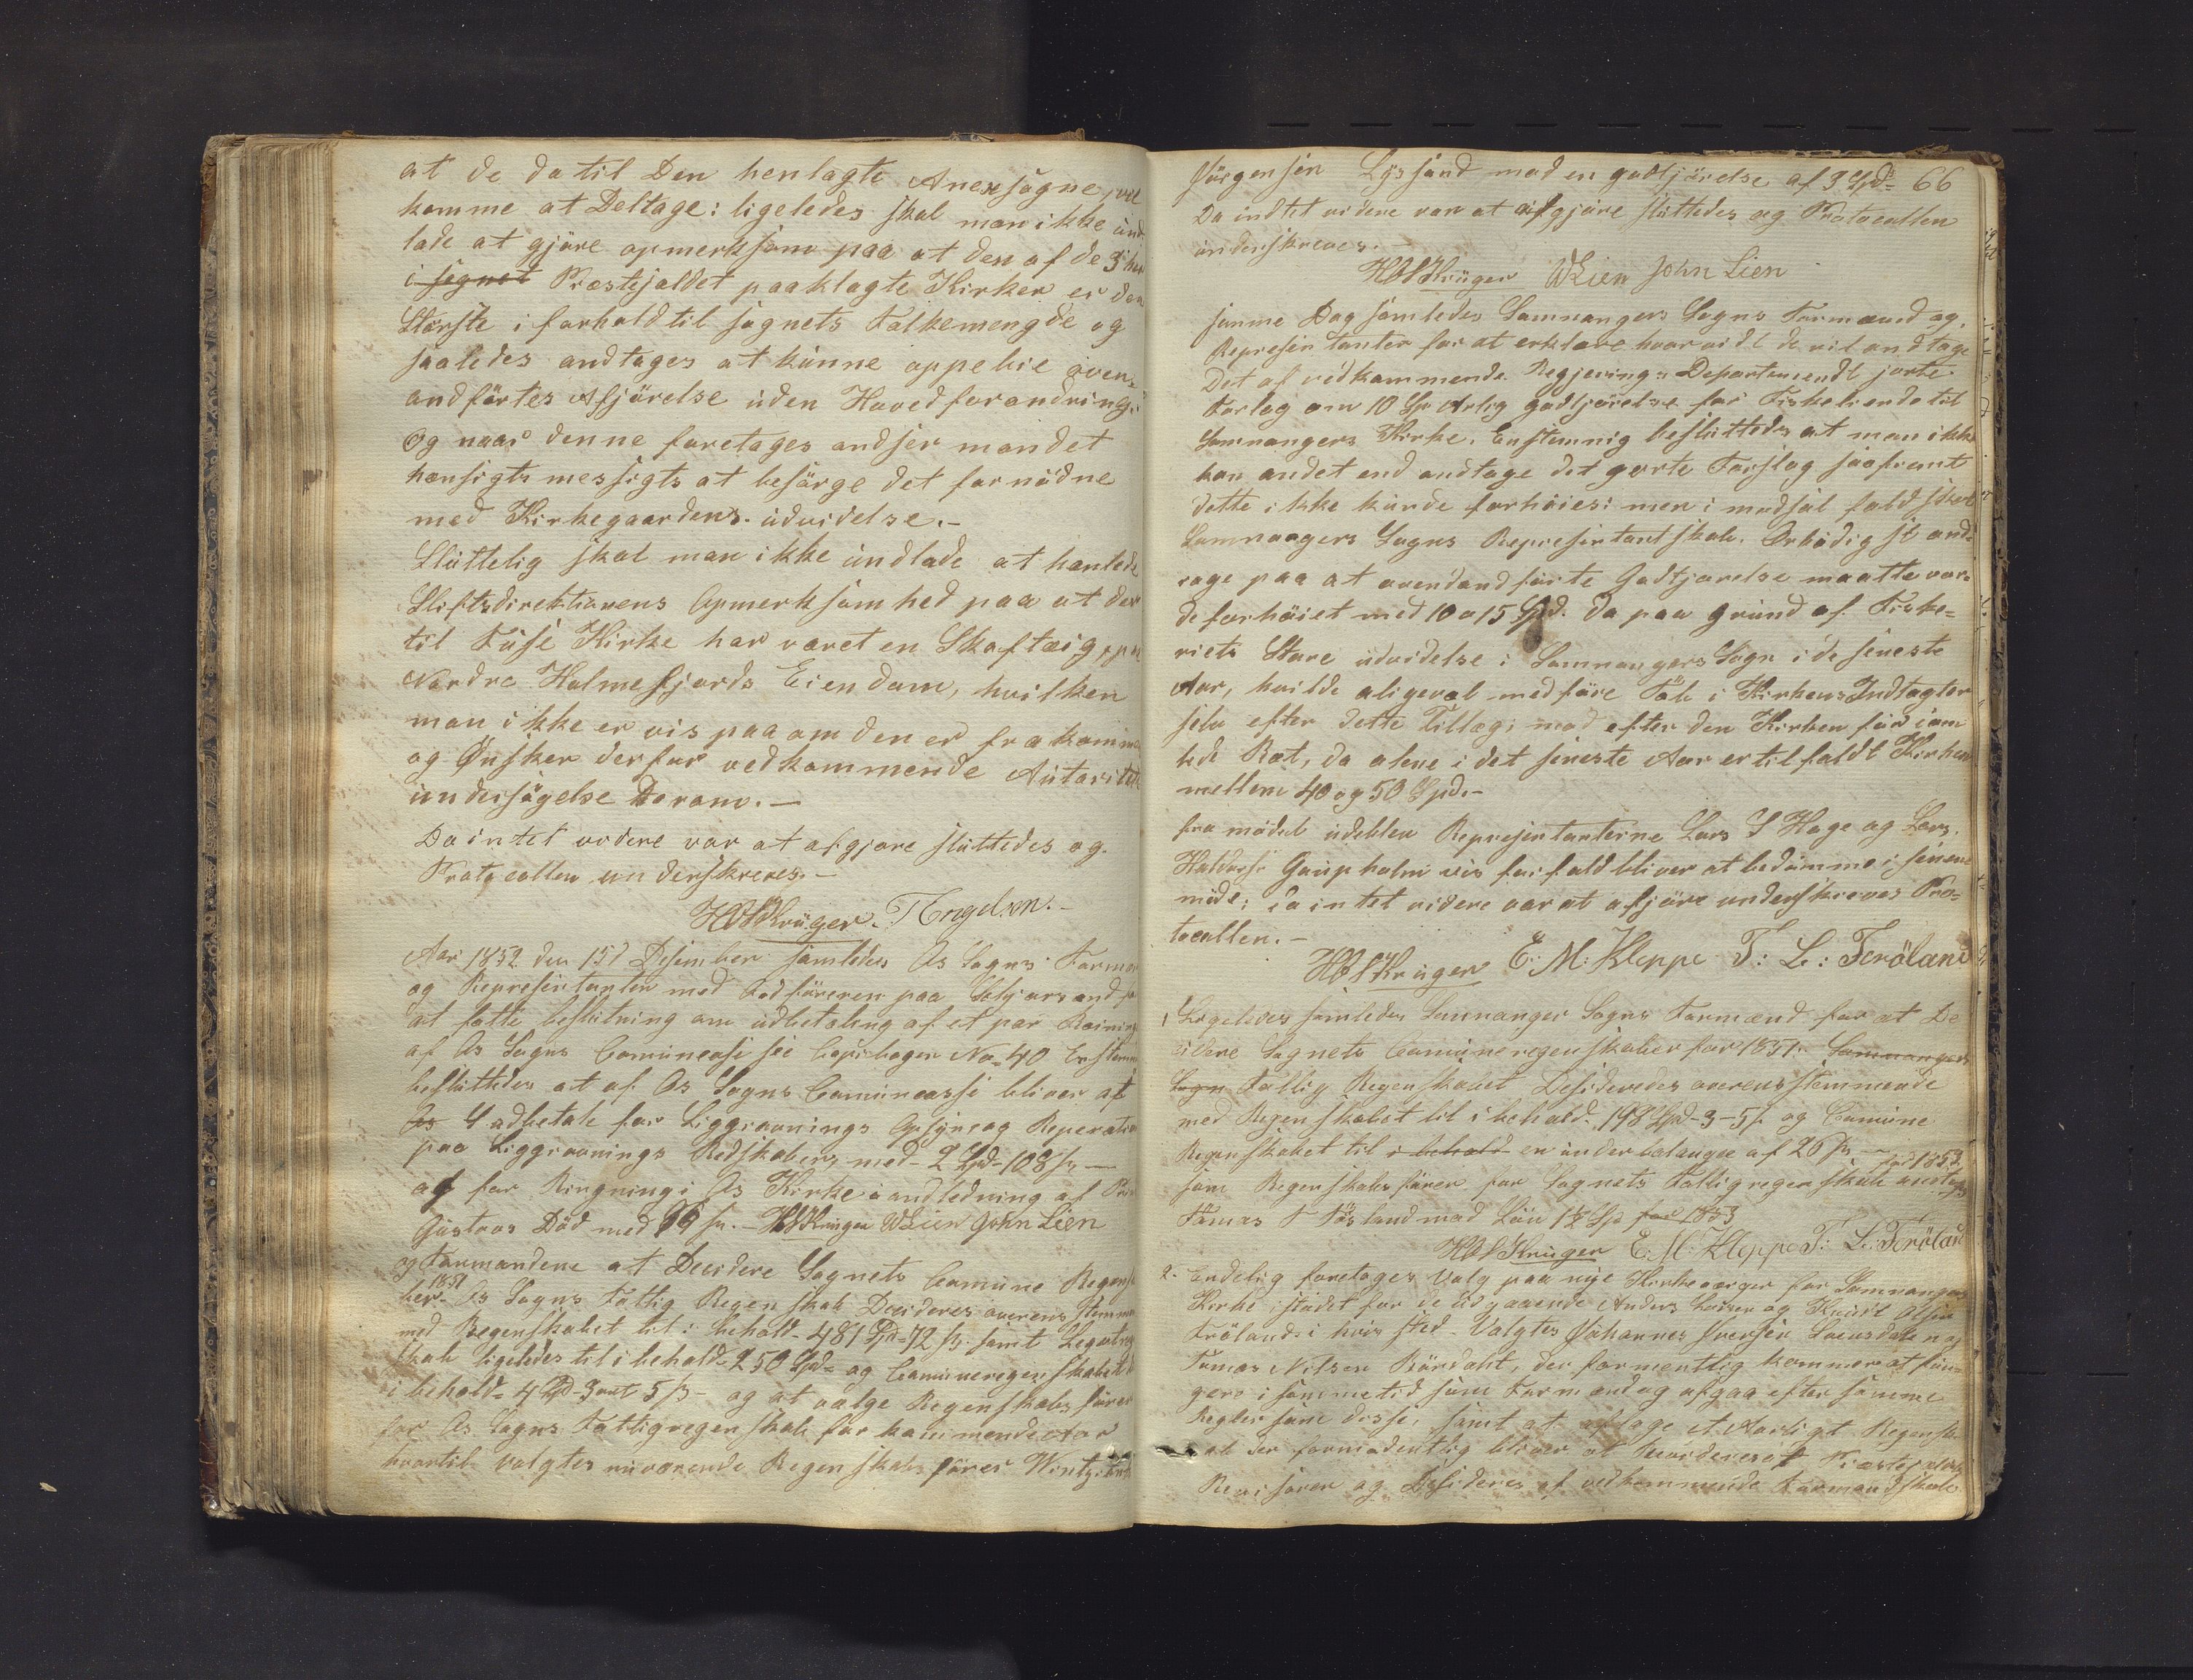 at de da til Den henlagte Anexsogne vil
komme at Deltage: ligeledes skal man ikke und
lade at gjöre opmerksom paa at den af de 3 her
i sognet Præstejeldet paaklagte Kirker er den
Störste i forhold til sognets Folkemengde og
saaledes andtages at kunne oppebie oven-
andförtes Afjörelse uden Hovedforandring.
Og naar denne foretages andser man det
hensigtsmessigts at besörge det fornödne
med Kirkegaardens udvidelse.-
Sluttelig skal man ikke undlade at henlede
Stiftsdirektionens Opmerksomhed paa at der
til Fuse Kirke har været en Skaftæig paa
Nordre Holmefjords Eiendom, hvilken
man ikke er vis paa om den er frakommen
og Önsker derfor vedkommende Autoritets
undersögelse Derom.-
Da intet vidre var at afgjore sluttedes og
Protocollen underskreves.-
HOSKrüger. T Engelsen.-
Aar 1852 den 15d Desember samledes Os Sogns Formæ
og Represientanter med Fodföreren paa Schjorsand for
at fatte beslutning om udbetaling af et par Reining
af Os Sogns Comunecasse see Copiebogen No 40 Enstem
besluttedes at af Os Sogns Comunecasse bliver at
Os Udbetale for Liggravnings Opsyns og Reperation
paa Liggravnings Redskabers med - 2 Spd - 108 s -
og for Ringning i Os Kirke i andledning af Prins
Gustavs Död med 99 s. - HOSKrüger WLien John Lien
og Formændene at Decidere Sognets Comune Regensk
ber 1851 Os Sogns Fattig Regenskab Decideres overensstemme
med Regenskabet til i behold - 481 Spd - 72 s. samt Legatreg
skab ligeledes til i behold - 250 Spd - og Comuneregenskabet til
i behold - 4 Spd - 3 ort 5 s - og at valge Regenskabsförer
for Os Sogns Fattigregenskab for kommende Aar
hvortil valgtes nuværende Regenskabsförer
Jörgensen Lyssand med en godtjörelse af 3 Spd - 66
Da indtet videre var at afgjöre sluttedes og Protocollen
underskreves.-
HOSKrüger WLien John Lien
samme Dag samledes Samnangers Sogns Formænd og
Represientanter for at erklære hvorvidt de vil andtage
Det af vedkommende Regjerings-Departementet jorte
Forlag om 10 Sp Arlig godtjörelse for Fiskeltiende til
Samnangers Kirke. Enstemnig besluttedes at man ikke
kan andet end andtage det gjorte Forslag saafremt
dette ikke kunde forhöies: men i modsat fald skal
Samnangers Sogns Represientantskab. Erbödigst and-
rage paa at ovenandförte Godtjorelse maatte vor-
de forhöiet med 10 a 15 Spd. Da paa grund af Fiske-
riets Store udvidelse i Samnangers Sogn i de seneste
Aar, hvilde aligevel medföre Tab i Kirkens Indtægter
selv efter dette Tillæg, mod efter den Kirken förd iom
lede Ret, da alene i det seneste Aar er tilfaldt Kirken
mellem 40 og 50 Spd.-
fra mödet udeblev Represientanterne Lars S Hage og Lars
Haldorse Gaupholm vis forfald bliver at bedömme i senere
möde; da intet videre var at afjöre underskreves Pro-
tocollen.-
HOSKrüger E: M: Kleppe T: L: Feröland
1, Ligeledes samledes Samnanger Sogns Formænd for at De
cidere Sognets Comuneregenskaber for 1851. Samnangers
Sogn Fattig Regenskabet Desideredes overensstemmende
med Regenskabet til i behold. 198 Spd - 3 - 5 s. og Comune
Regenskabet til i behold en underbalangse af 26 s -
som Regenskabsförer for Sognets Fattigregenskab andtoges for 1852
Tomas T Tösland med Lön 1½ Spd for 1853
HOSKrüger E: M: Kleppe T: L: Feröland
2. Endelig foretoges Valg paa nye Kirkeværger for Samnangers
Kirke istedet for de Udgaaende Anders Larsen og Knudt Olsen
Fröland, i hvis sted - Valgtes Johannes Iversen og
Tomas Nilsen Bördahl, der formentlig kommer at fun-
gere i samme tid som Formænd og afgaa efter samme
Regler som disse, samt at aflage et Aarligt Regensk
ab der formodentlig bliver at Revideres af Præstejeldets
Revisorer og Desideres af vedkommende Formandskab